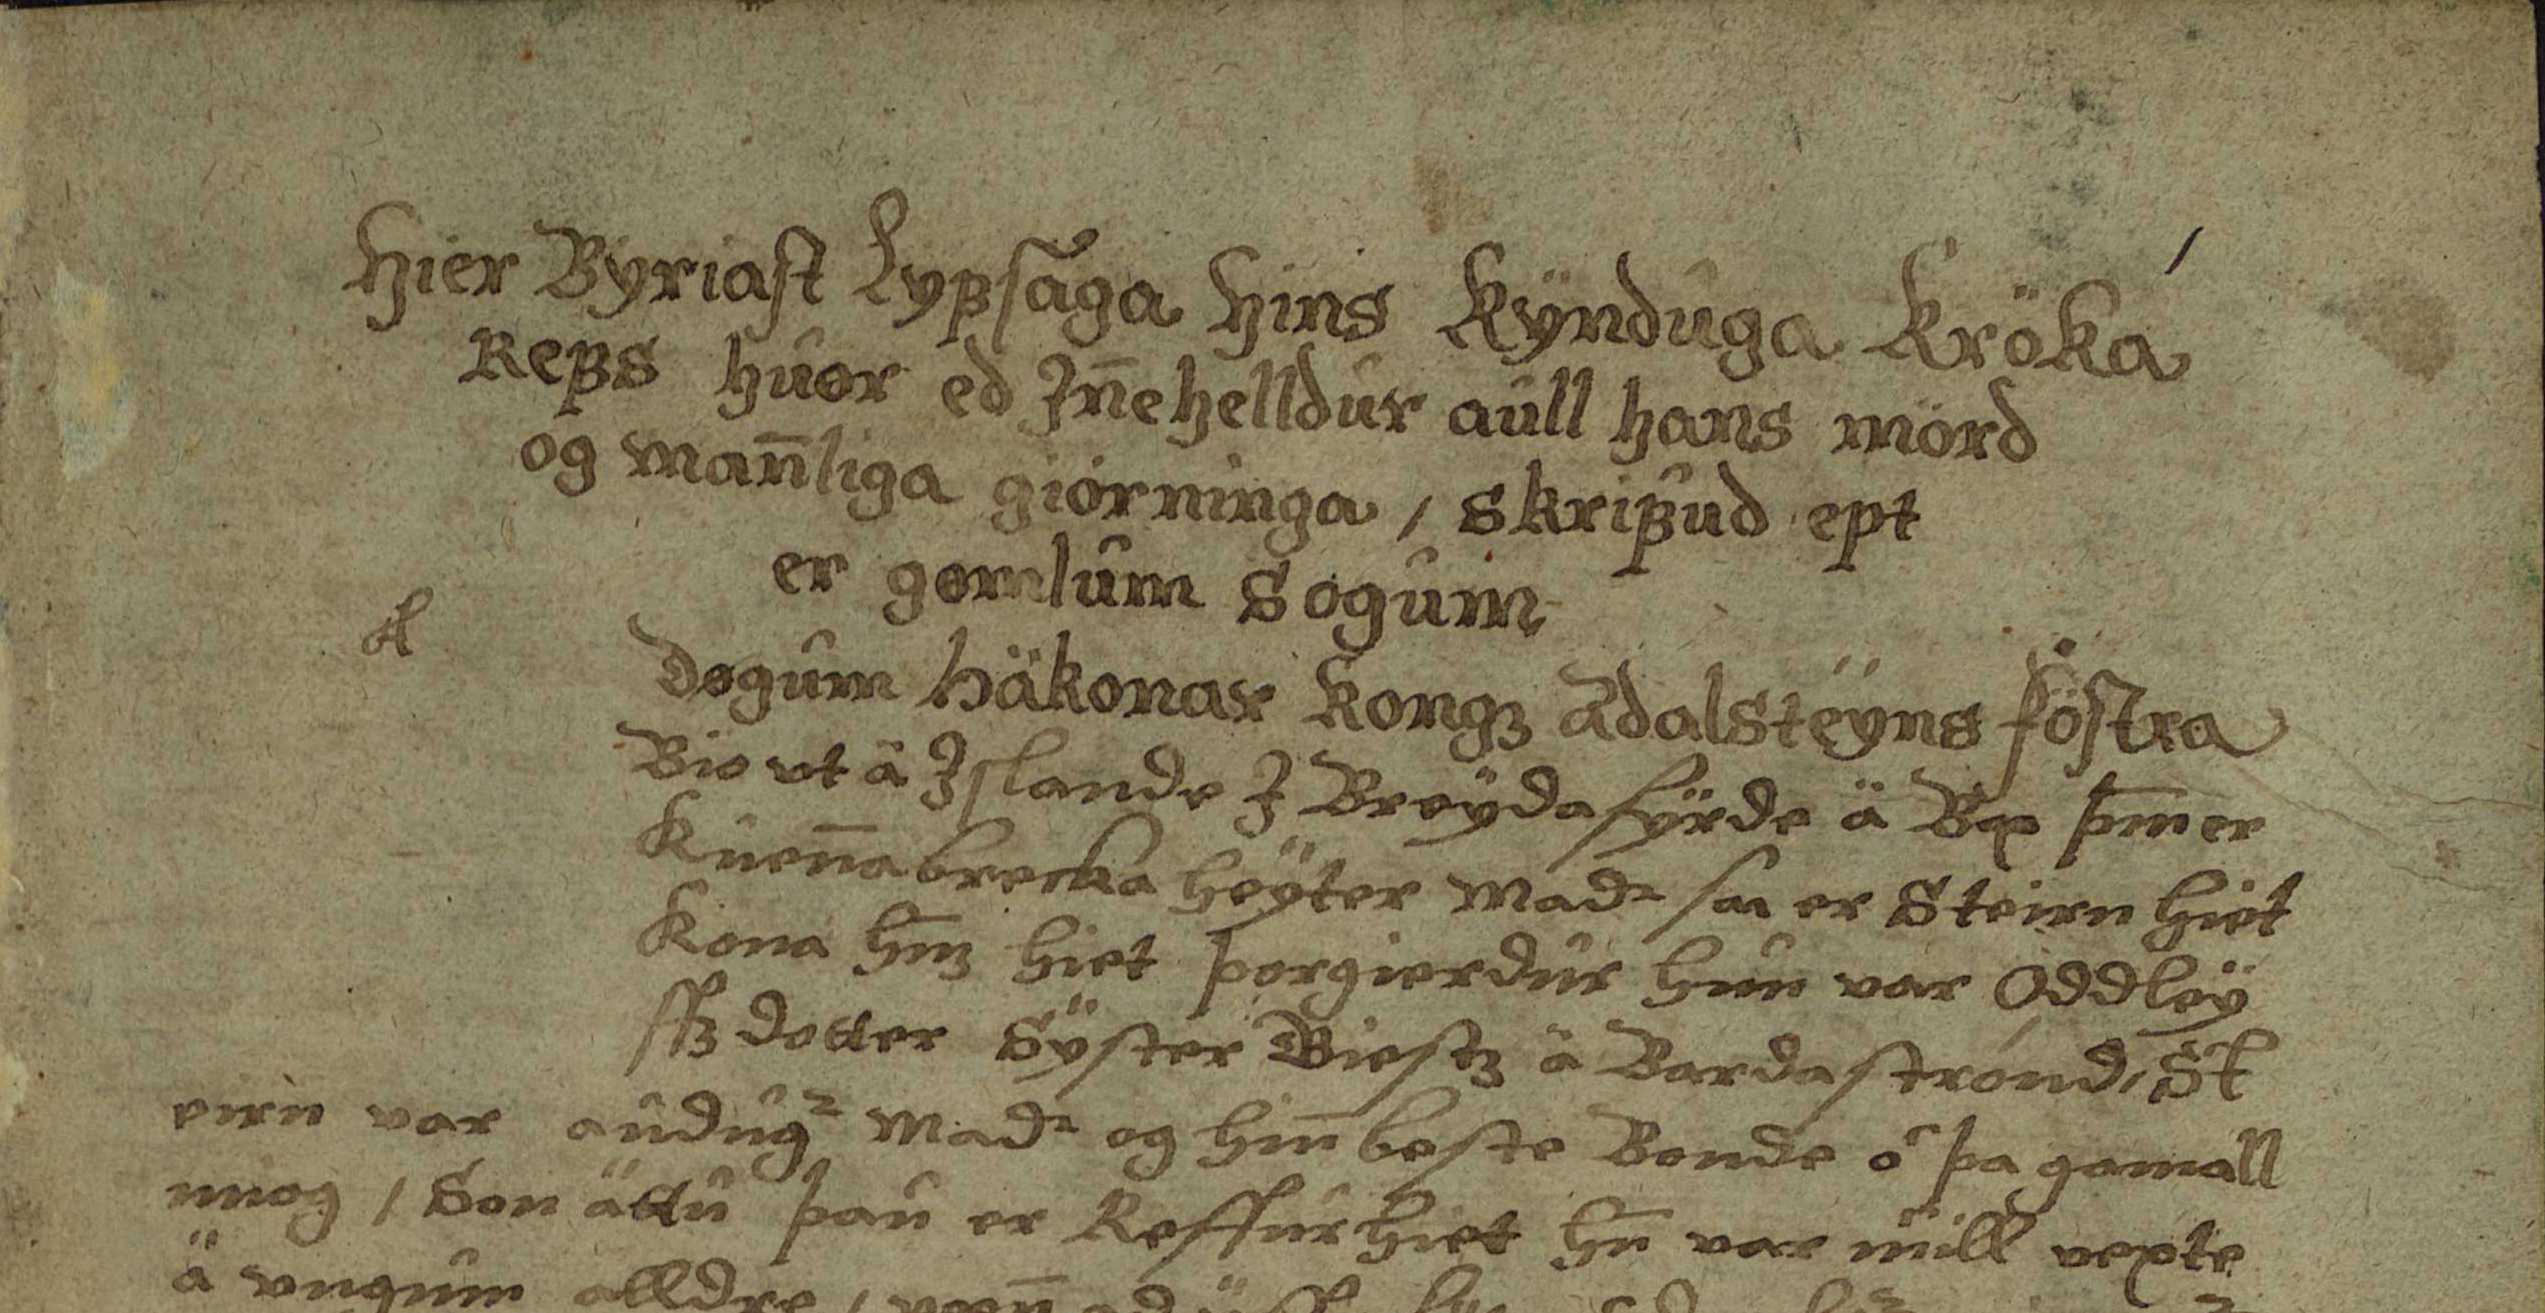 Hier Byriast Lyꝩsaga Hins Kÿnduga Kröka
Reꝩs huør ed Jn̄ehelldur aull hans mörd
og man̄liga giörninga, skriꝩud ept
er gømlum Sögum
A
døgum häkonar Kongz Adalsteÿns föstra
Bio vt ä Jslande J Breÿdafyrde ä Bæ þm̄ er
Kuen̄abrecka heÿter Madr sa er Steirn hiet
Kona hn̄z hiet þorgierdur hun var Oddleÿ
ffz dotter Sÿster Giestz ä Bardaströnd, St
eirn var audugr Madr og hin̄ beste Bonde ö þa gamall
miog, Son ättu þau er Reffur hiet hn̄ var mill vexte
ä vngum alldre, ven̄